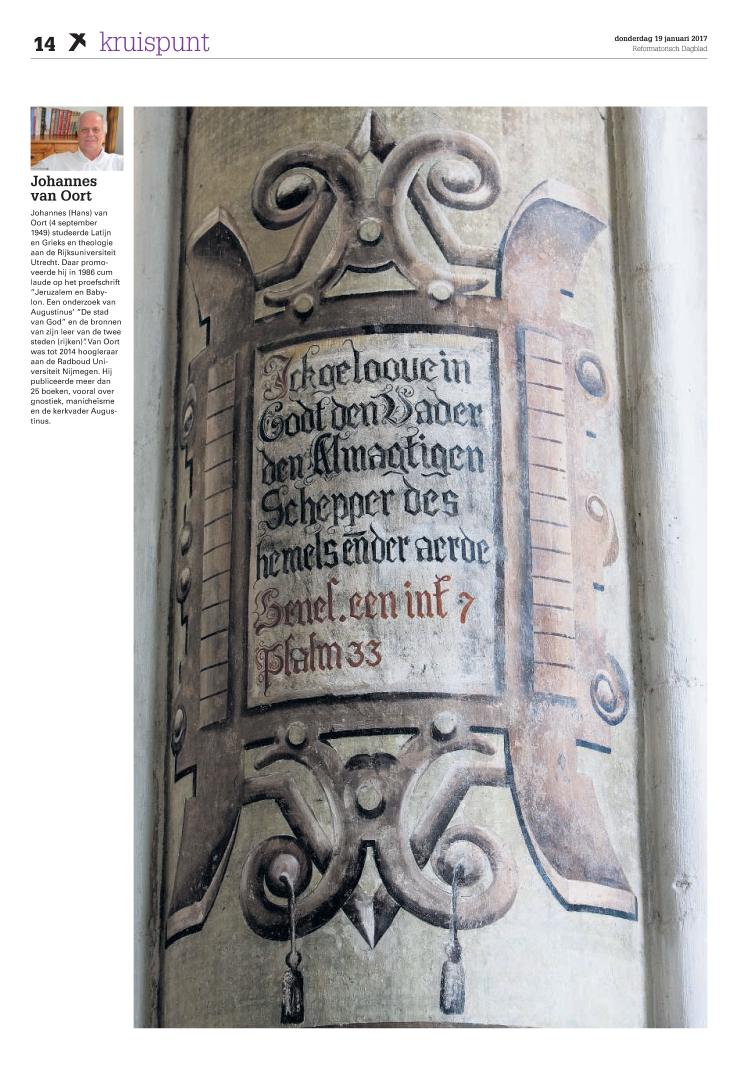 14 kruispunt
donderdag 19 januari 2017
Reformatorisch Dagblad
Johannes
van Oort
Johannes (Hans) van
Oort (4 september
1949) studeerde Latijn
en Grieks en theologie
aan de Rijksuniversiteit
Utrecht. Daar promo-
veerde hij in 1986 cum
laude op het proefschrift
"Jeruzalem en Baby-
lon. Een onderzoek van
Augustinus' "De stad
van God" en de bronnen
van zijn leer van de twee
steden (rijken)". Van Oort
was tot 2014 hoogleraar
aan de Radboud Uni-
versiteit Nijmegen. Hij
publiceerde meer dan
25 boeken, vooral over
gnostiek, manicheïsme
en de kerkvader Augus-
tinus.
Ick geloove in
Godt den Vader
den Almagtigen
Schepper des
hemels eñ der aerde
Genes. een int 7
Psalm 33